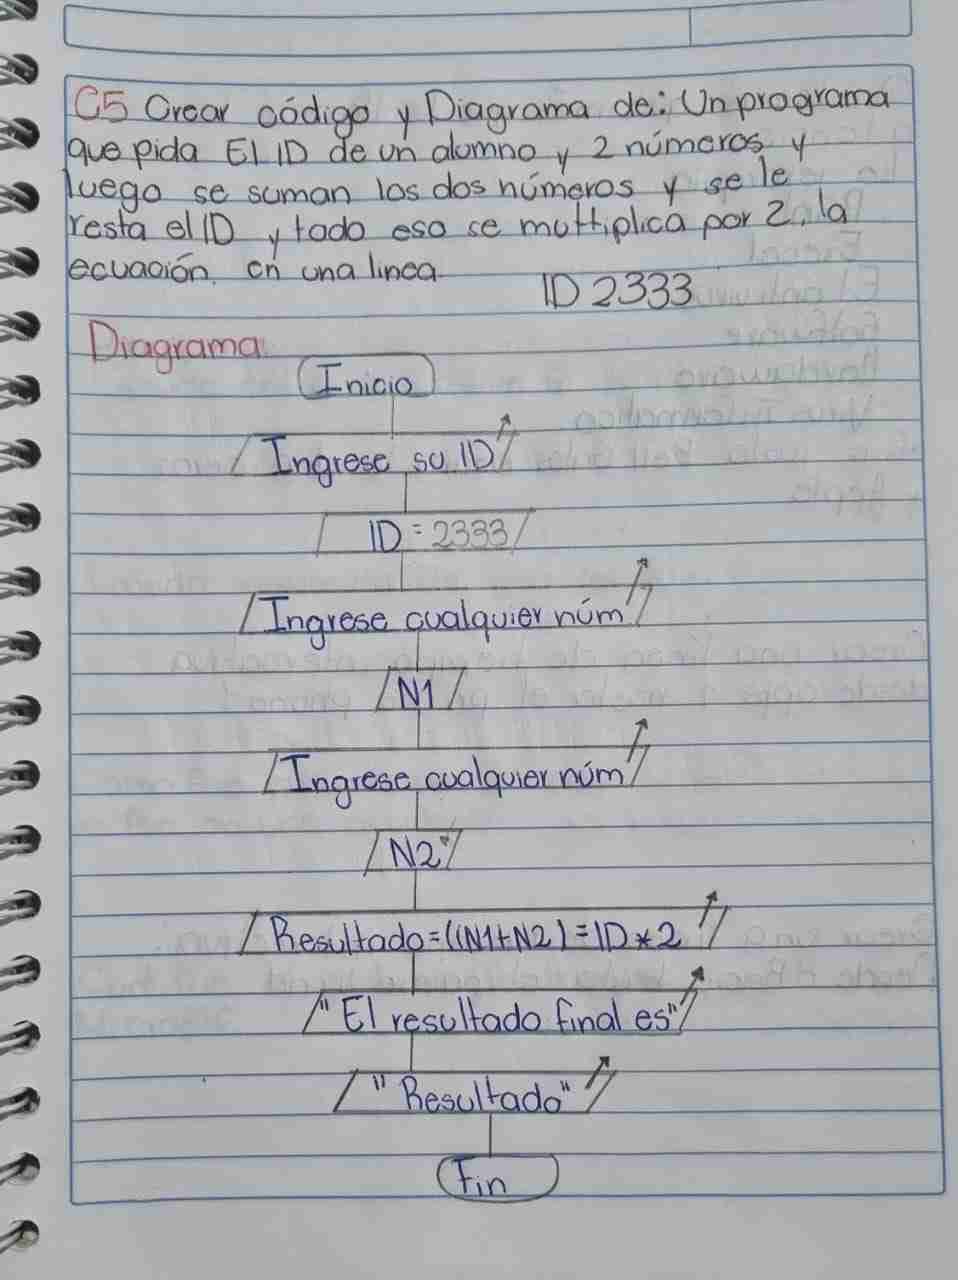 C5 Crear código y Diagrama de: Un programa
que pida El ID de un alumno y 2 números y
luego se suman los dos números y se le
resta el ID y todo eso se multiplica por 2, la
ecuación. en una linea
ID 2333
Diagrama:
Inicio
Ingrese su ID
ID = 2333
Ingrese cualquier núm
N1
Ingrese cualquier núm
N2
Resultado=((N1+N2)=ID*2
"El resultado final es"
"Resultado"
Fin